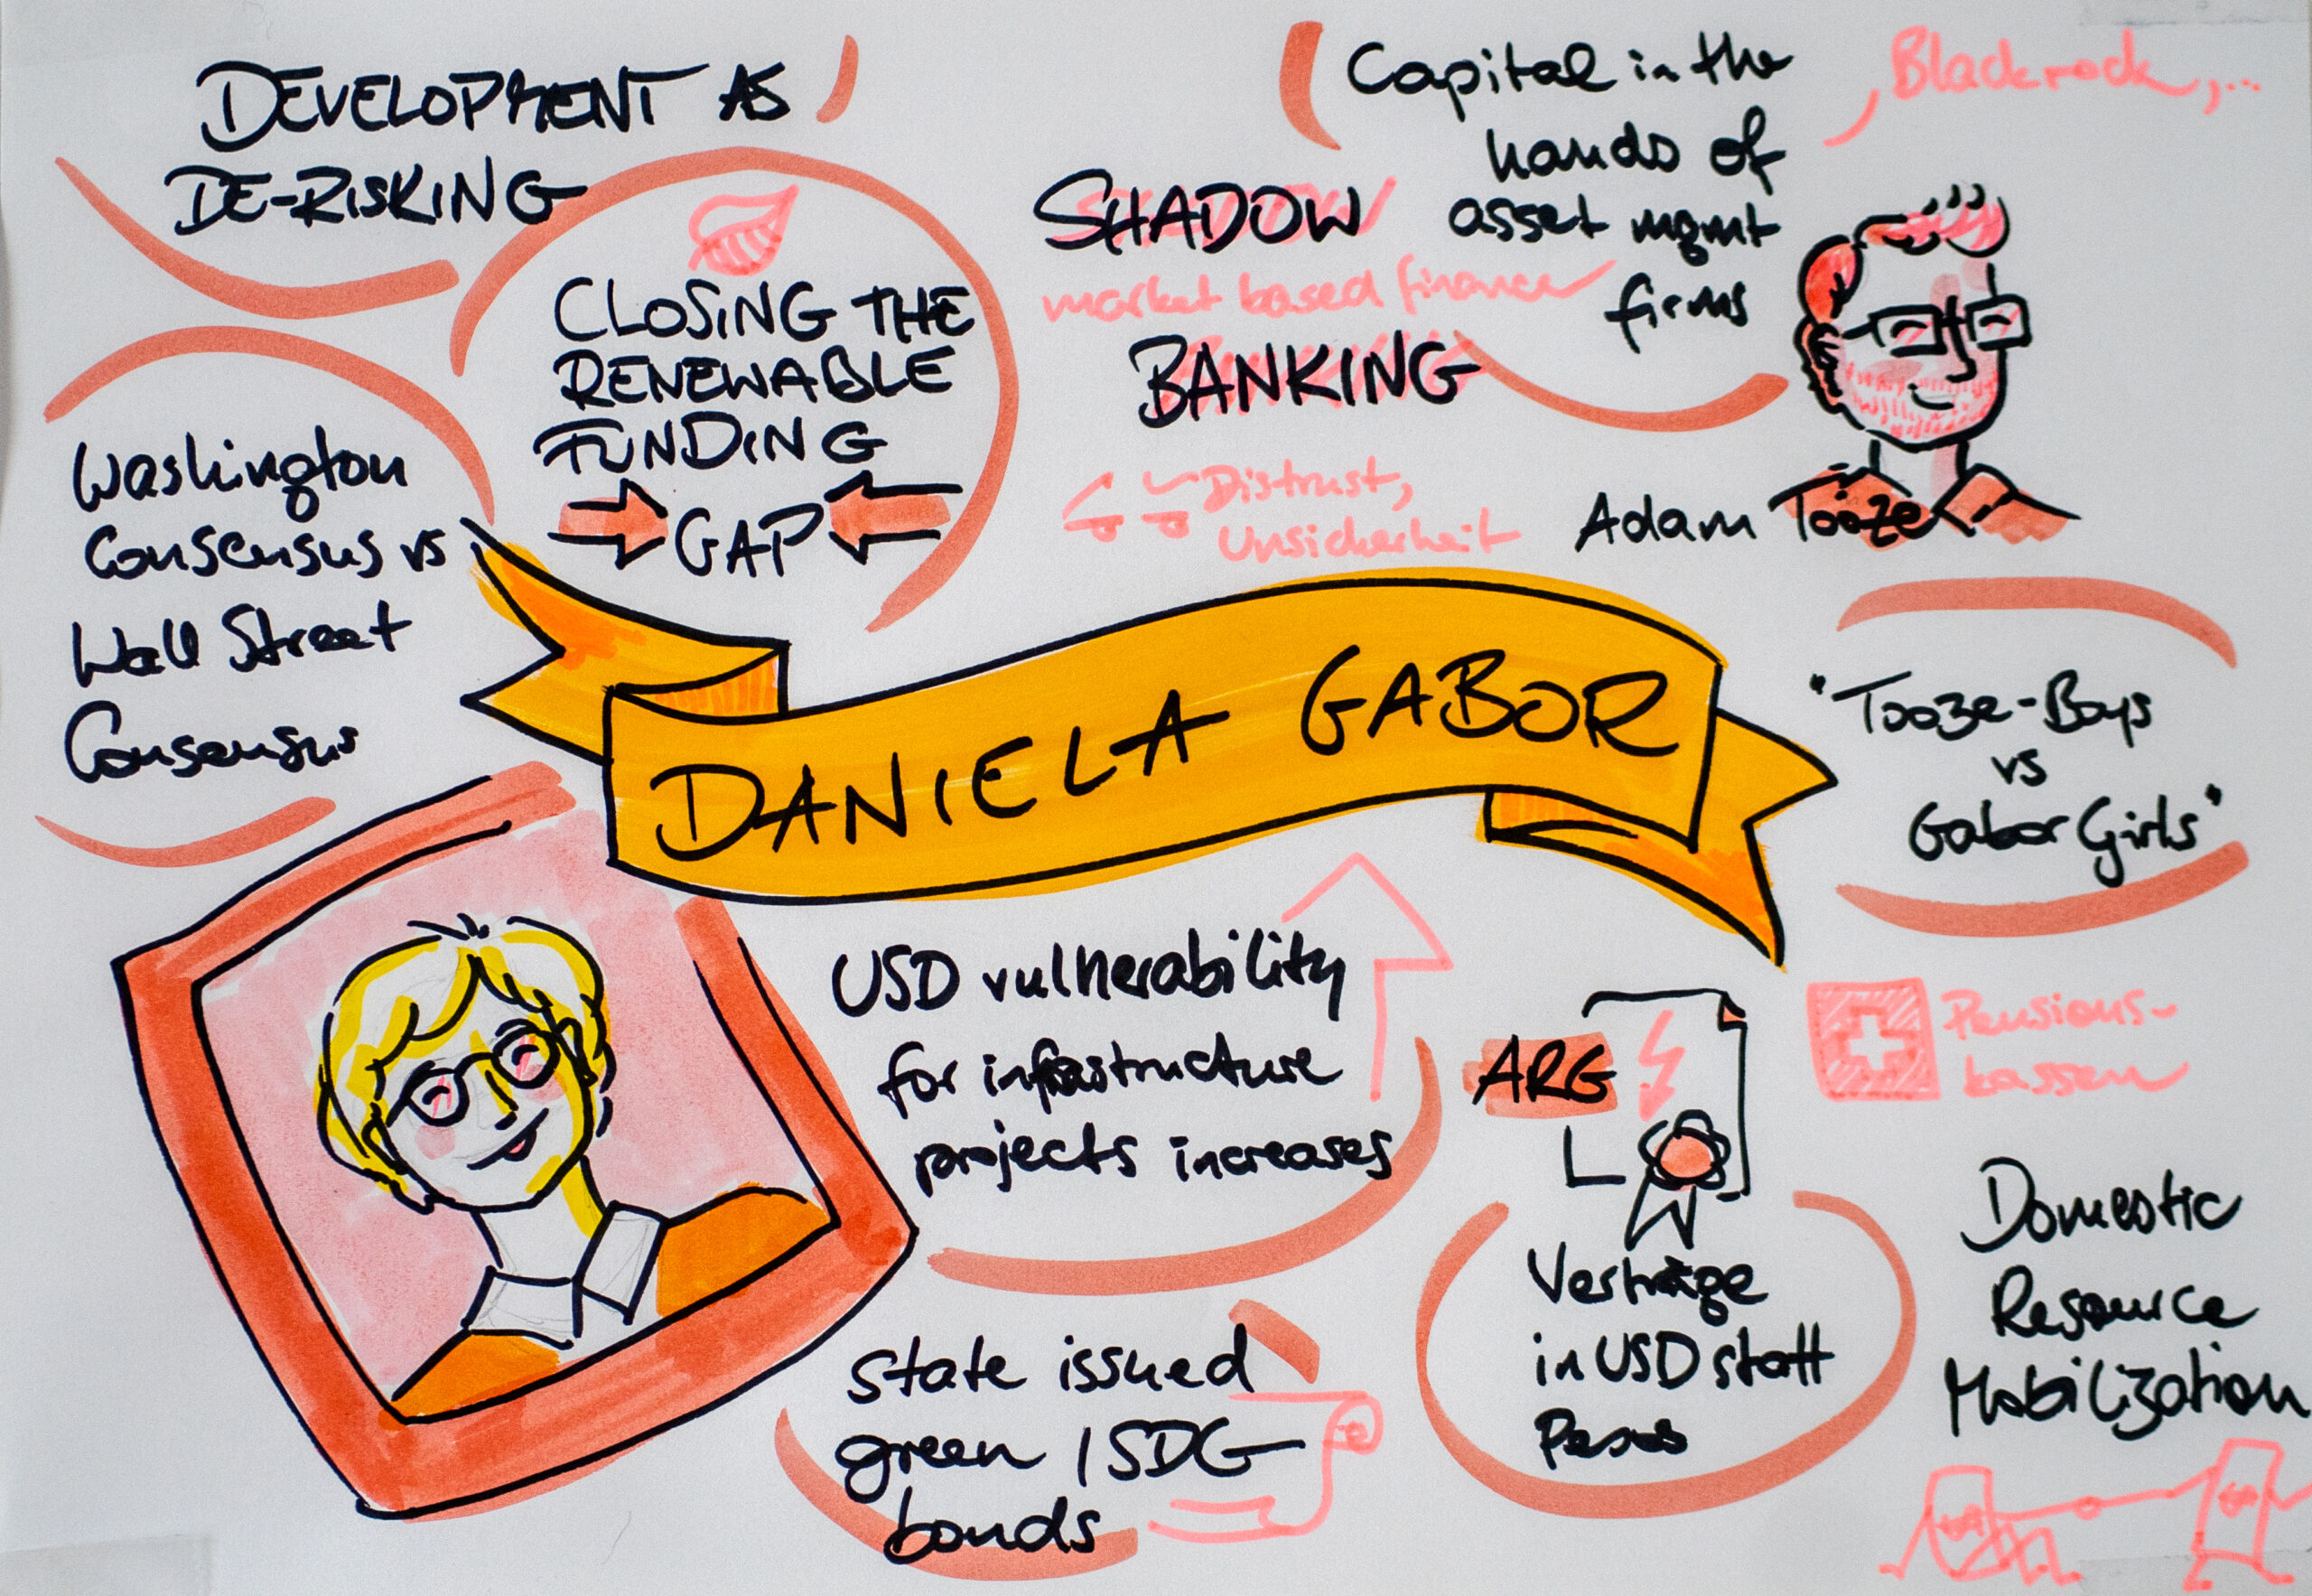 DEVELOPMENT AS
DE-RISKING
CLOSING THE
RENEWABLE
FUNDING
GAP
Washington
Consensus vs
Wall Street
Consensus
SHADOW
market based finance
BANKING
Distrust,
Unsicherheit
Capital in the
hands of
asset mgmt
firms
, Blackrock, ...
Adam Tooze
DANIELA GABOR
"Tooze-Boys
vs
Gabor Girls"
USD vulnerability
for infrastructure
projects increases
State issued
green / SDG
bonds
ARG
Verträge
in USD statt
Pesos
Pensions-
kassen
Domestic
Resource
Mobilization